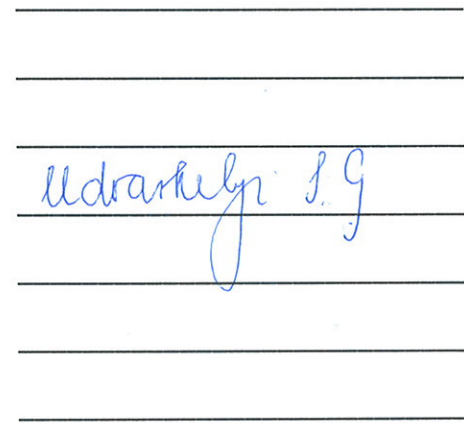 Udvarhelyi S. G